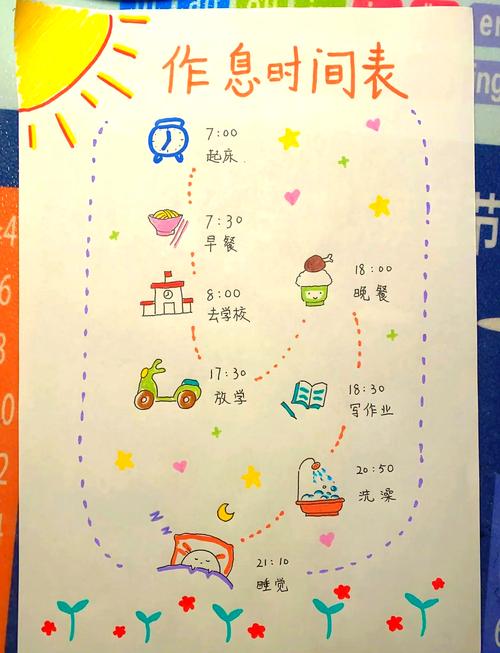 作息时间表
7:00
起床
7:30
早餐
8:00
去学校
17:30
放学
18:00
晚餐
18:30
写作业
20:50
洗澡
21:10
睡觉